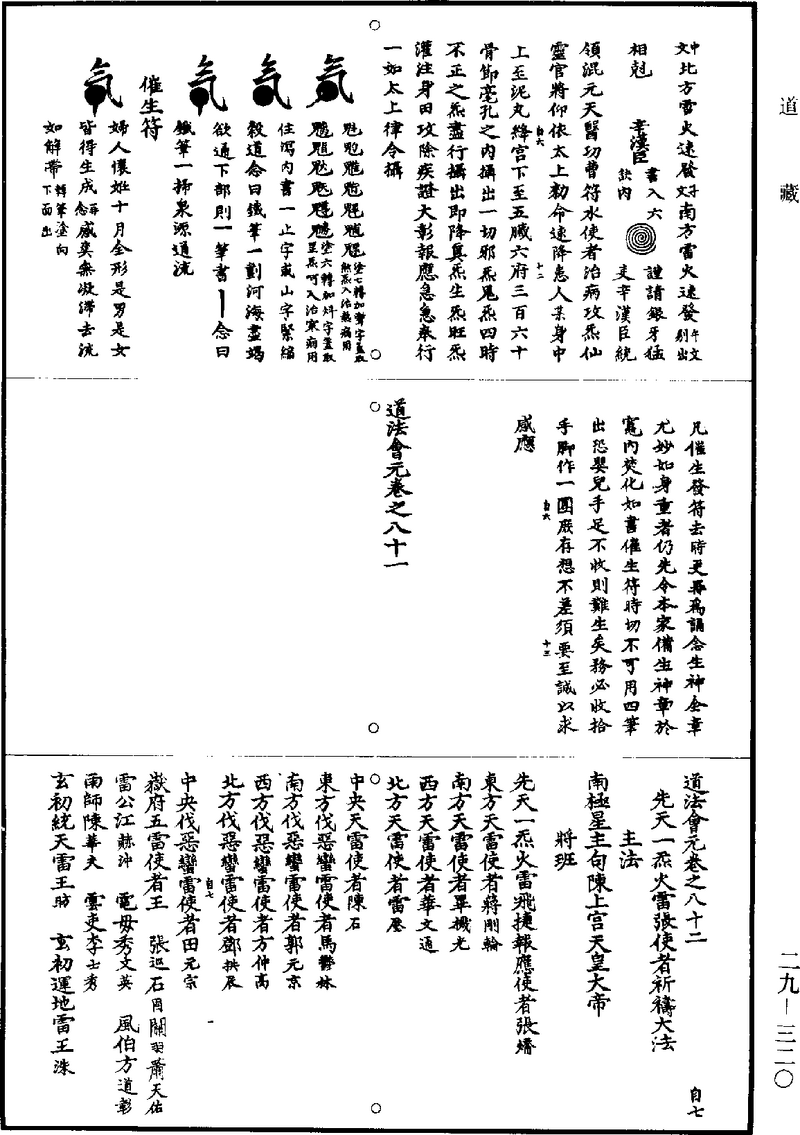 道藏
中文北方雷火速發子文南方雷火速發午文剔出
相尅　辛漢臣　書入六訣內　謹請銀牙猛吏辛漢臣統
領混元天醫功曹符水使者治病攻炁仙
靈官將仰依太上勑命速降患人某身中
自六
上至泥丸絳宮下至五臟六府三百六十
十二
骨節毫孔之內攝出一切邪炁鬼炁四時
不正之炁盡行攝出即降真炁生炁旺炁
灌注身田攻除疾證大彰報應急急奉行
一如太上律令攝
塗七轉加魙字蓋取煞炁入治熱病用
塗六轉加炓字蓋取呈炁呵入治寒病用
住瀉內書一止字或山字緊縮
穀道念曰鐵筆一劃河海盡竭
欲通下部則一筆書丨念曰
鐵筆一掃泉源通流
催生符
婦人懷姙十月全形是男是女
皆得生成再念感奕無凝滯去流
如解帶轉筆塗向下面出
凡催生發符去時更再爲誦念生神金章
尤妙如身重者仍先令本家備生神章於
竈內焚化如書催生符時切不可用四筆
出恐嬰兒手足不收則難生矣務必收拾
手脚作一團庶存想不差須要至誠以求
自六
十三
感應
道法會元卷之八十一
道法會元卷之八十二
自七
先天一炁火雷張使者祈禱大法
主法
南極星主句陳上宮天皇大帝
將班
先天一炁火雷飛捷報應使者張燔
東方天雷使者蔣剛輪
南方天雷使者畢機光
西方天雷使者華文通
北方天雷使者雷壓
中央天雷使者陳石
東方伐惡蠻雷使者馬鬱林
南方伐惡蠻雷使者郭元京
西方伐惡蠻雷使者方仲高
北方伐惡蠻雷使者鄧拱辰
自七
一
中央伐惡蠻雷使者田元宗
嶽府五雷使者王　張巡石固關羽蕭天佑
雷公江赫沖　電母秀文英　風伯方道彰
雨師陳華夫　雲吏李士秀
玄初統天雷王昉　玄初運地雷王洙
二九—三二〇